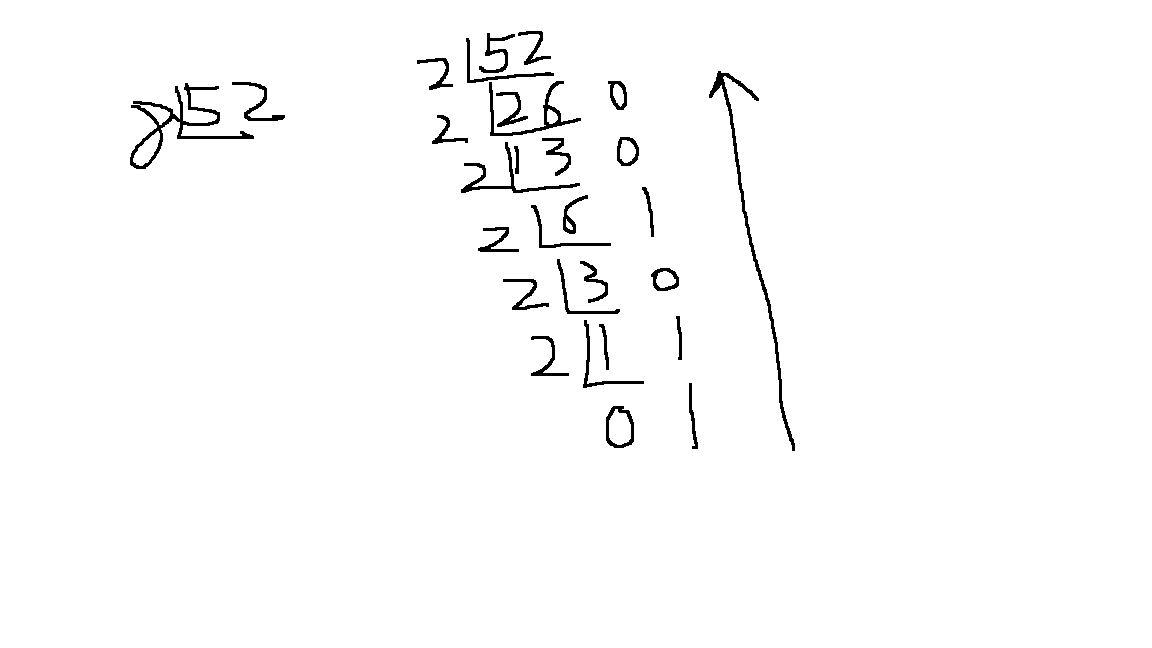 2 52
2 26 0
2 13 0
2 6 1
2 3 0
2 1 1
0 1
52